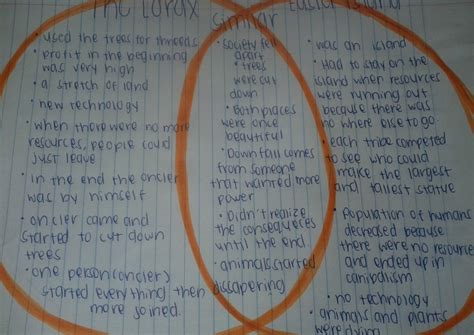 The Lorax
• used the trees for threeds
• profit in the beginning
was very high
• a stretch of land
• new technology
• when there were no more
resources, people could
just leave
• in the end the oncler
was by himself
• oncler came and
started to cut down
trees
• one person (oncler)
started everything then
more joined.
Similar
• society fell
apart
• trees
were cut
down
• Both places
were once
beautiful
• Downfall comes
from someone
that wanted more
power
• Didn't realize
the consequeses
until the end.
• animals started
dissapering
Easter Island
• was an island
• Had to stay on the
island when resources
were running out
because there was
no where else to go.
• each tribe competed
to see who could
make the largest
and tallest statue
• Population of humans
decreased because
there were no resource
and ended up in
canibalism
• no technology
• animals and plants
were dying